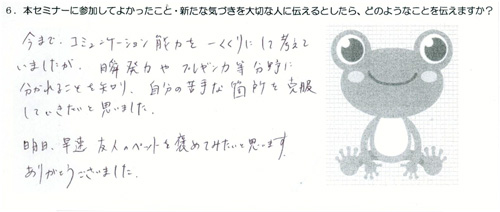 6．本セミナーに参加してよかったこと・新たな気づきを大切な人に伝えるとしたら、どのようなことを伝えますか？
今まで、コミュニケーション能力を一くくりにして考えて
いましたが、瞬発力やプレゼン力等分野に
分かれることを知り、自分の苦手な箇所を克服
していきたいと思いました。
明日、早速友人のペットを褒めてみたいと思います。
ありがとうございました。